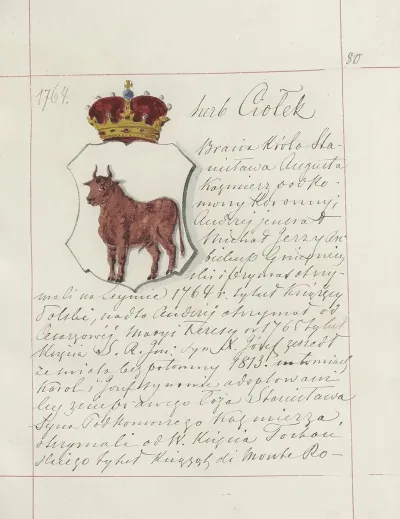 80
1764.
herb Ciołek
Bracia Króla Sta-
nisława Augusta
Kazmierz podko-
morzy Koronny,
Andrzej jenerał
Michał Jerzy Ar-
biskup Gnieznien-
ski otrzy-
mali na Sejmie 1764 r. tytuł Książęcy
Polski, nadto Andrzej otrzymał od
Cesarzowéj Maryi Teresy w 1765 tytuł
Księcia S. R. Jm: syn Jozef zeszedł
ze swiata bez potomny 1813.
Karol i Jozef synowie adoptowani
Stanisława
syna Podkomorzego Kazmierza
otrzymali od W. Księcia Toskań-
skiego tytuł Książąt di Monte Ro-